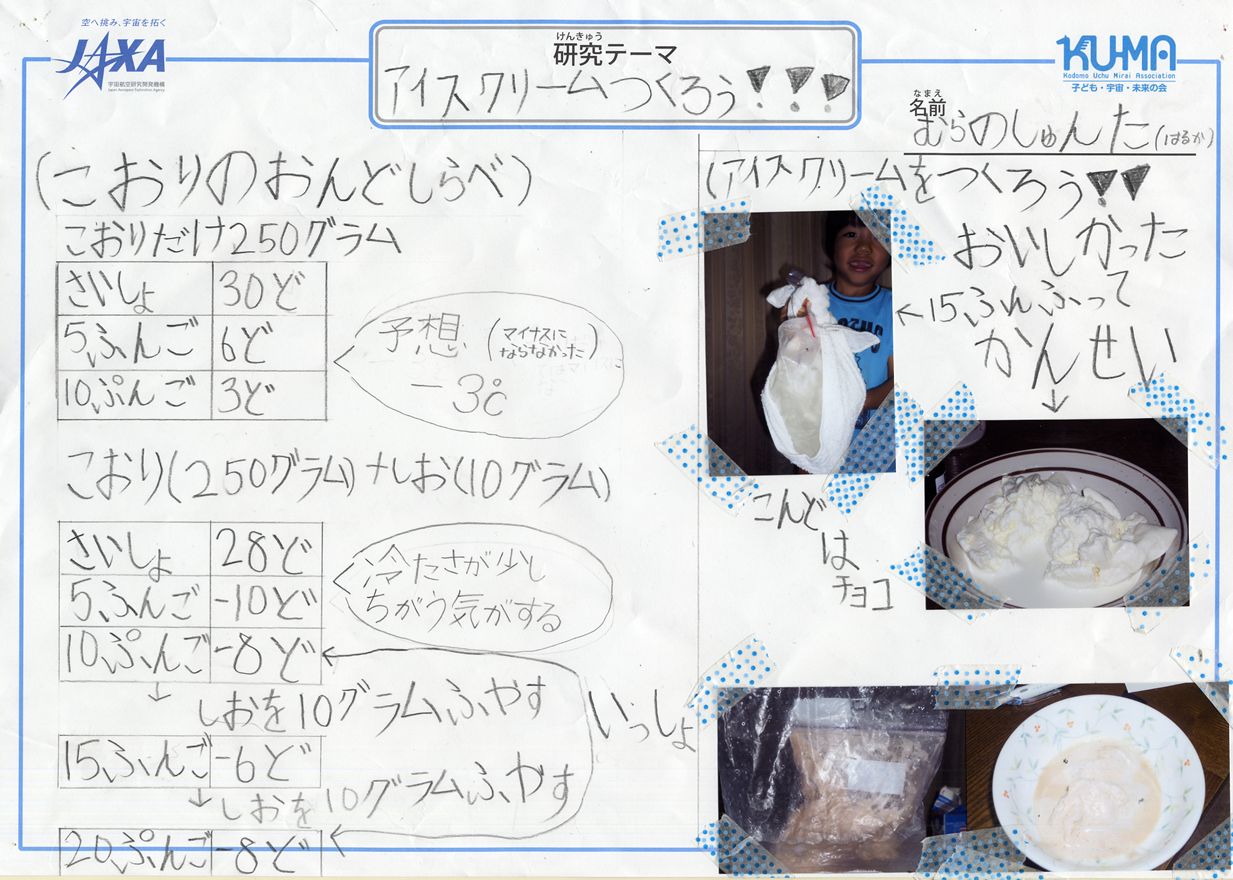 空へ挑み、宇宙を拓く
JAXA
宇宙航空研究開発機構
Japan Aerospace Exploration Agency
けんきゅう
研究テーマ
アイスクリームつくろう!!!
KU-MA
Kodomo Uchu Mirai Association
子ども・宇宙・未来の会
なまえ
名前
むらのしゅんた(はるか)
(こおりのおんどしらべ)
こおりだけ250グラム
さいしょ 30ど
5ふんご 6ど
10ぷんご 3ど
予想 (マイナスにならなかった)
-3℃
こおり(250グラム)+しお(10グラム)
さいしょ 28ど
5ふんご -10ど
10ぷんご -8ど
冷たさが少し
ちがう気がする
↓ しおを10グラムふやす
15ふんご -6ど
↓しおを10グラムふやす
20ぷんご -8ど
いっしょ
(アイスクリームをつくろう!!
おいしかった
←15ふんふって
かんせい
↓
こんど
は
チョコ